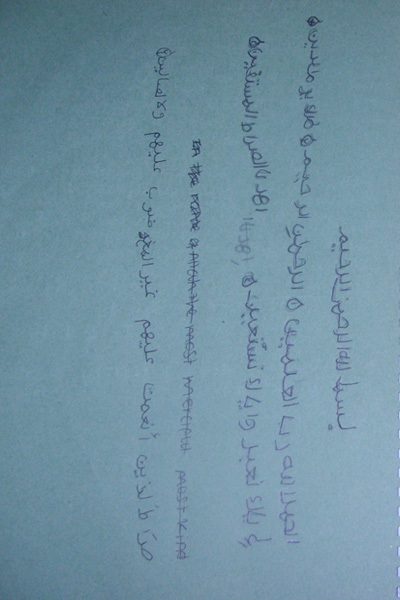 بسم الله الرحمن الرحيم
الحمد لله رب العلمين ه الرحمن الرحيم ه ملك يوم الدين ه
إياك نعبد وإياك نستعين ه اهدنا اهدنا الصراط المستقيم ه
In the name of Allah the most merciful most kind
صراط الذين أنعمت عليهم غير المغضوب عليهم ولا الضالين